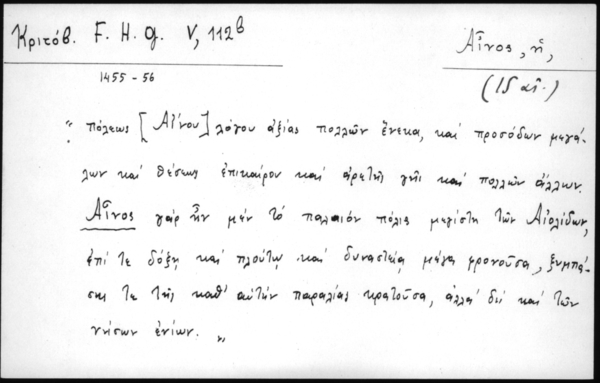 Κριτόβ. F. H. g. V, 112b
Αἶνος, ἡ,
1455 - 56
(15 αἰ.)
„ πόλεως [Αἴνου] λόγου ἀξίας πολλῶν ἕνεκα, καὶ προσόδων μεγά-
λων καὶ θέσεως ἐπικαίρου καὶ ἀρετῆς γῆς καὶ πολλῶν ἄλλων.
Αἶνος γὰρ ἦν μὲν τὸ παλαιὸν πόλις μεγίστη τῶν Αἰολίδων,
ἐπί τε δόξῃ καὶ πλούτῳ καὶ δυναστείᾳ μέγα φρονοῦσα, ξυμπά-
σης τε τῆς καθ' αὑτὴν παραλίας κρατοῦσα, ἀλλὰ δὴ καὶ τῶν
νήσων ἐνίων. „